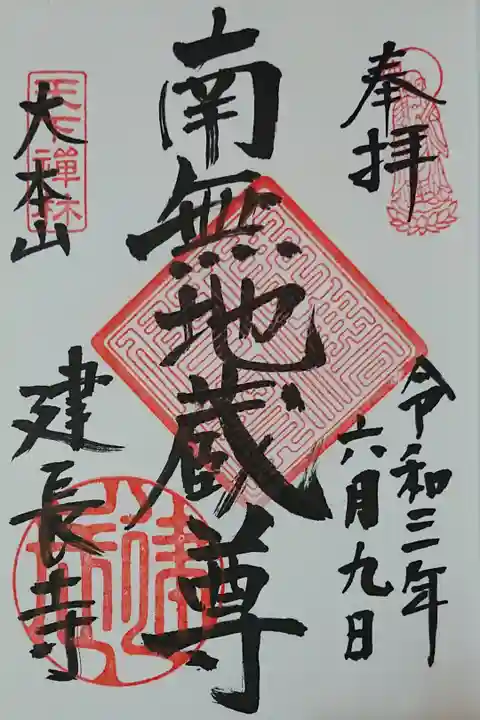 奉拝
令和三年
六月九日
南無地蔵尊
天下禅林
大本山
建長寺